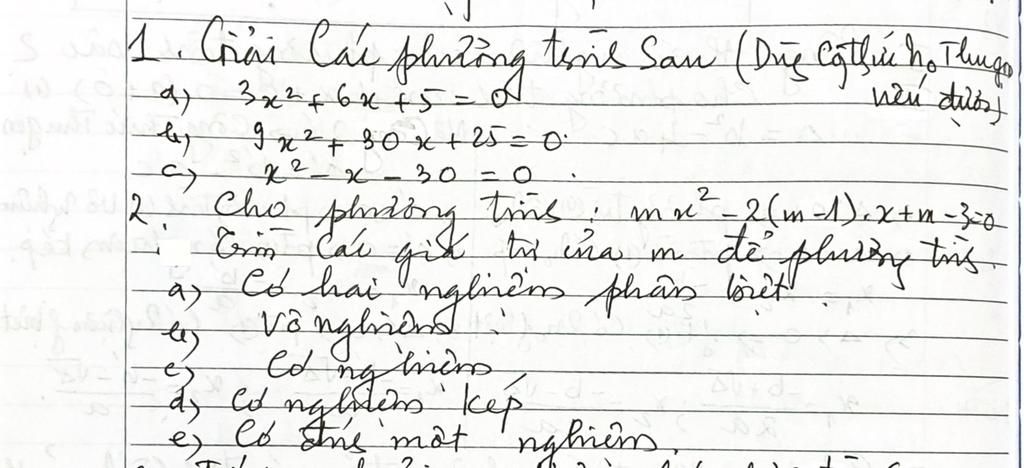 1. Giải các phương trình sau (Dùng Công thức no Thu gọn
nếu được)
a) 3x² + 6x + 5 = 0
b) 9x² + 30x + 25 = 0.
c) x² - x - 30 = 0.
2 Cho phương trình: mx² - 2(m-1).x + m - 3 = 0
Tìm các giá trị của m để phương trình.
a) Có hai nghiệm phân biệt.
b) Vô nghiệm
c) Có nghiệm
d) Có nghiệm kép
e) Có đúng một nghiệm.